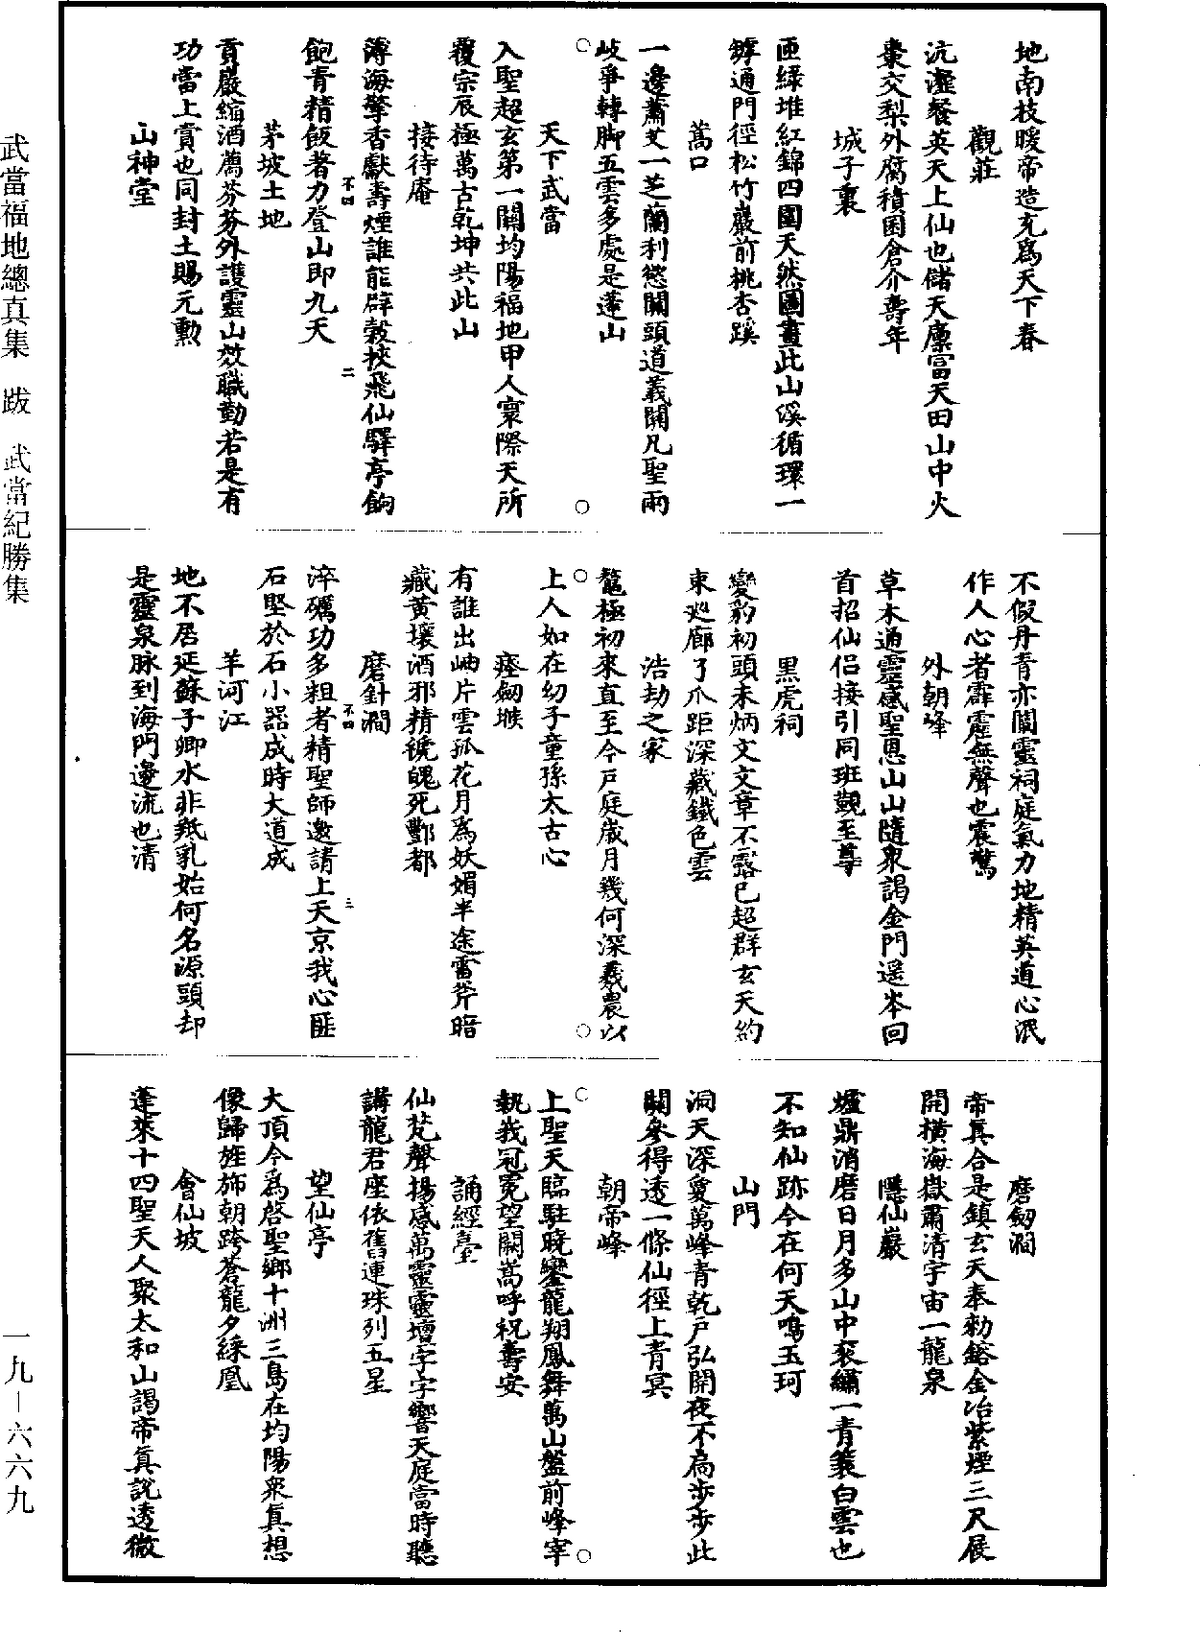 地南枝暖帝造充爲天下春
觀莊
沆瀣餐英天上仙也儲天廩富天田山中火
棗交梨外腐積囷倉介壽年
城子裏
匝綠堆紅錦四圍天然圖畫此山溪循環一
鋝通門徑松竹巖前桃杏蹊
蒿口
一邊蕭艾一芝蘭利慾關頭道義關凡聖兩
岐爭轉脚五雲多處是蓬山
天下武當
入聖超玄第一關均陽福地甲人寰際天所
覆宗辰極萬古乾坤共此山
接待庵
薄海擎香獻壽煙誰能辟穀挾飛仙驛亭餉
飽青精飯著力登山即九天
茅坡土地
貢嚴縮酒薦芬芬外護靈山效職勤若是有
功當上賞也同封土賜元勳
山神堂
不假丹青亦闡靈祠庭氣力地精英道心泯
作人心者霹靂無聲也震驚
外朝峰
草木通靈感聖恩山山隨衆謁金門遥岑回
首招仙侣接引同班覲至尊
黑虎祠
變豹初頭未炳文文章不露已超群玄天約
束巡廊了爪距深藏鐵色雲
浩劫之家
鼇極初來直至今戸庭歲月幾何深羲農以
上人如在幻子童孫太古心
瘞劒堠
有誰出岫片雲孤花月爲妖媚半途雷斧暗
藏黄壤酒邪精毚魄死酆都
磨針澗
淬礪功多粗者精聖師邀請上天京我心匪
石堅於石小器成時大道成
羊河江
地不居延蘇子卿水非羝乳始何名源頭却
是靈泉脉到海門邊流也清
磨劒澗
帝真合是鎮玄天奉勑鎔金冶紫煙三尺展
開横海嶽肅清宇宙一龍泉
隱仙巖
爐鼎消磨日月多山中衮繡一青蓑白雲也
不知仙跡今在何天鳴玉珂
山門
洞天深敻萬峰青乾戸弘開夜不扃步步此
關參得透一條仙徑上青冥
朝帝峰
上聖天臨駐曉鑾龍翔鳳舞萬山盤前峰宰
執我冠冕望闕嵩呼祝壽安
誦經臺
仙梵聲揚感萬靈靈壇字字響天庭當時聽
講龍君座依舊連珠列五星
望仙亭
大頂今爲啓聖鄉十洲三島在均陽衆真想
像歸旌斾朝跨蒼龍夕綵凰
會仙坡
蓬萊十四聖天人聚太和山謁帝真説透微
武當福地總真集　跋　武當紀勝集
一九—六六九
不四
二
不四
三